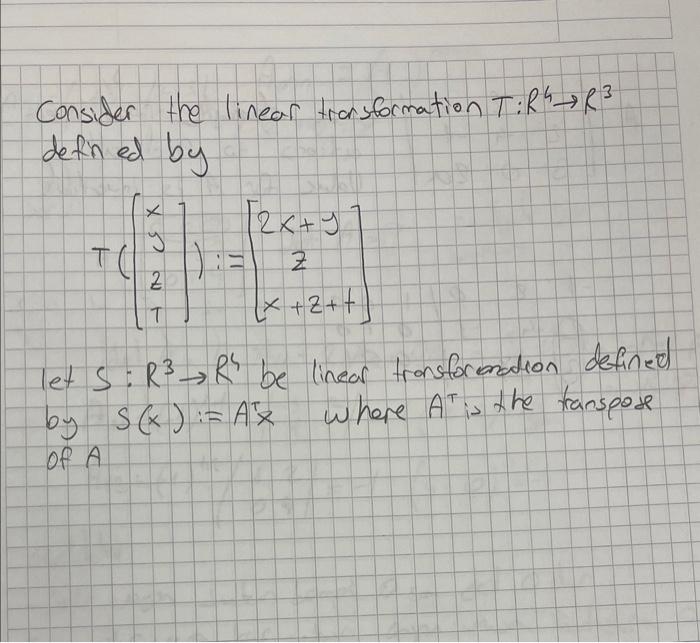 Consider the linear transformation T:R⁴→R³
defined by
T([x y z T]) := [2x+y z x+z+t]
let S : R³→R⁴ be linear transformation defined
by S(x) := Aᵀx where Aᵀ is the transpose
of A